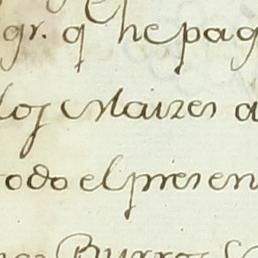 gr. q he pag
los Maizes a
todo el presen
Burros